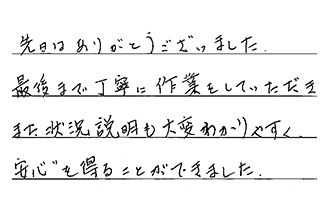 先日はありがとうございました.
最後まで丁寧に作業をしていただき
また状況説明も大変わかりやすく.
安心を得ることができました.